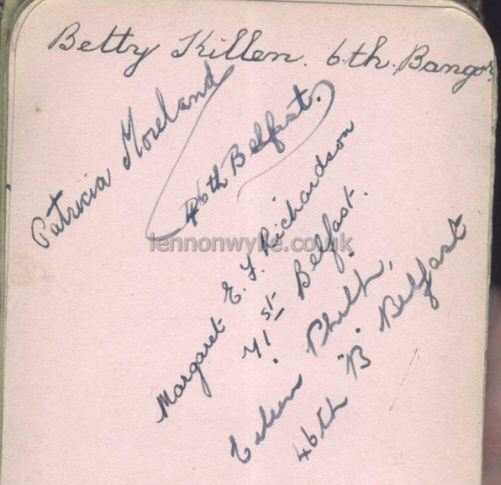 Betty Killen. 6th. Bangor
Patricia Moreland
46th Belfast.
Margaret E. F. Richardson
71st Belfast.
lennonwylie.co.uk
Eileen
46th "B" Belfast